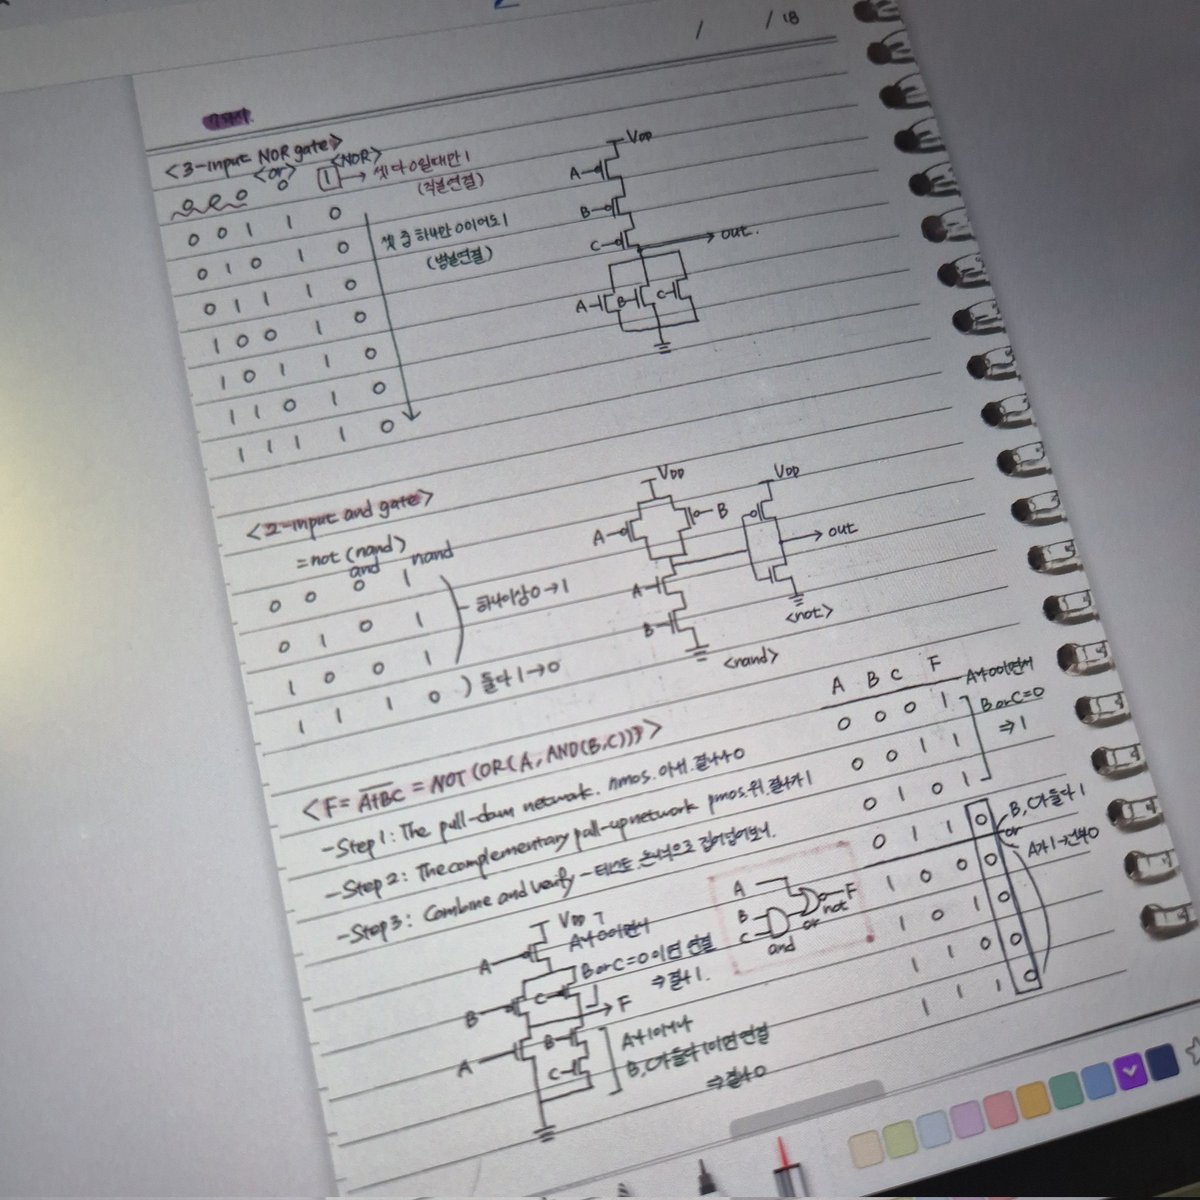 / /18
<3-input NOR gate>
<or> <NOR>
0 0 0 0 1 → 셋 다 0일때만 1
(직렬연결)
0 0 1 1 0
셋 중 하나만 0이어도 1
(병렬연결)
0 1 0 1 0
0 1 1 1 0
1 0 0 1 0
1 0 1 1 0
1 1 0 1 0
1 1 1 1 0
VDD
A
B
C
out.
A B C
<2-input and gate>
= not (nand)
and nand
0 0 0 1
0 1 0 1
하나이상 0→1
1 0 0 1
1 1 1 0 ) 둘다 1→0
VDD VDD
A B
out
A
B
<not>
<nand>
<F = A+BC = NOT (OR(A, AND(B,C)))>
-Step 1: The pull-down network. nmos. 아래. 결과 0
-Step 2: The complementary pull-up network pmos. 위. 결과가 1
-Step 3: Combine and verify -
A B C F
0 0 0 1
A가 0이면서
B or C=0
⇒ 1
0 0 1 1
0 1 0 1
0 1 1 0
B, C가 둘다 1
or
A가 1→전부 0
1 0 0 0
1 0 1 0
1 1 0 0
1 1 1 0
A
B
C
and
or
not
F
VDD
A
A가 0이면서
B or C=0이면 연결
⇒ 결과 1.
B C
F
A B
C
A가 1이거나
B, C가 둘다 1이면 연결
⇒ 결과 0